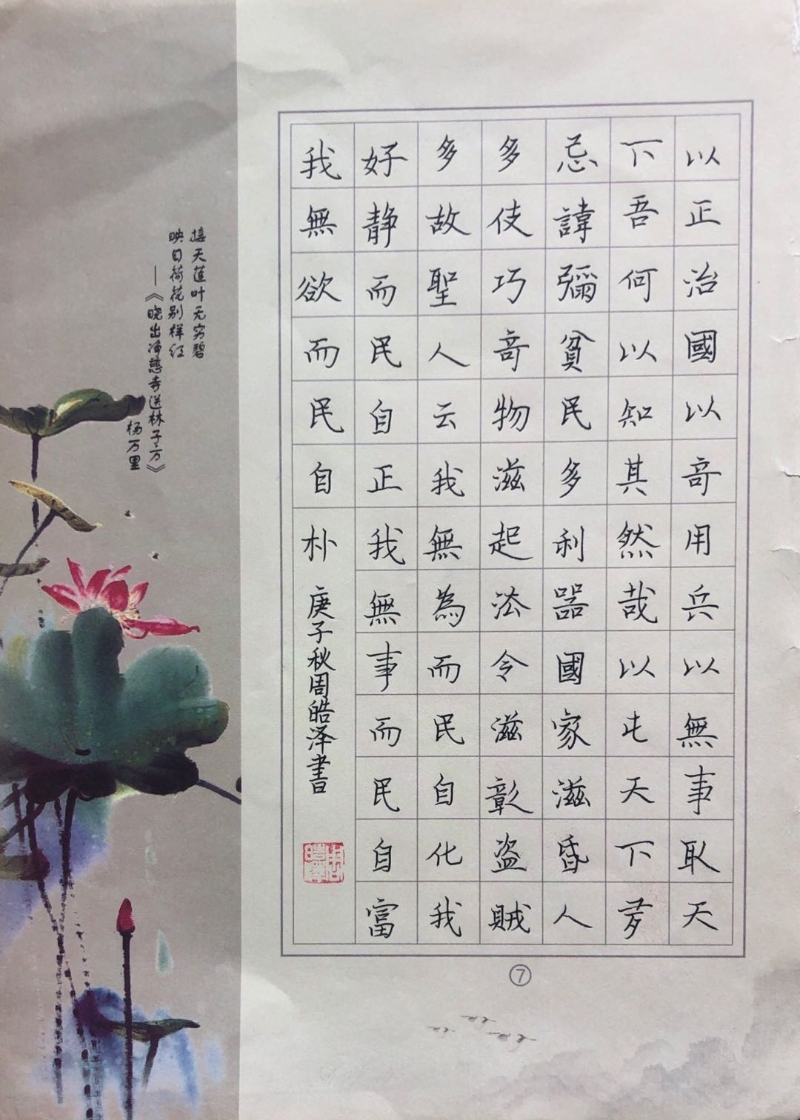 以正治國以竒用兵以無事取天
下吾何以知其然哉以屯天下
忌諱彌貧民多利器國家滋昏人
多伎巧竒物滋起法令滋彰盗賊
多故聖人云我無為而民自化我
好静而民自正我無事而民自富
我無欲而民自朴
庚子秋周皓泽書
接天莲叶无穷碧
映日荷花别样红
——《晓出净慈寺送林子方》
杨万里
⑦